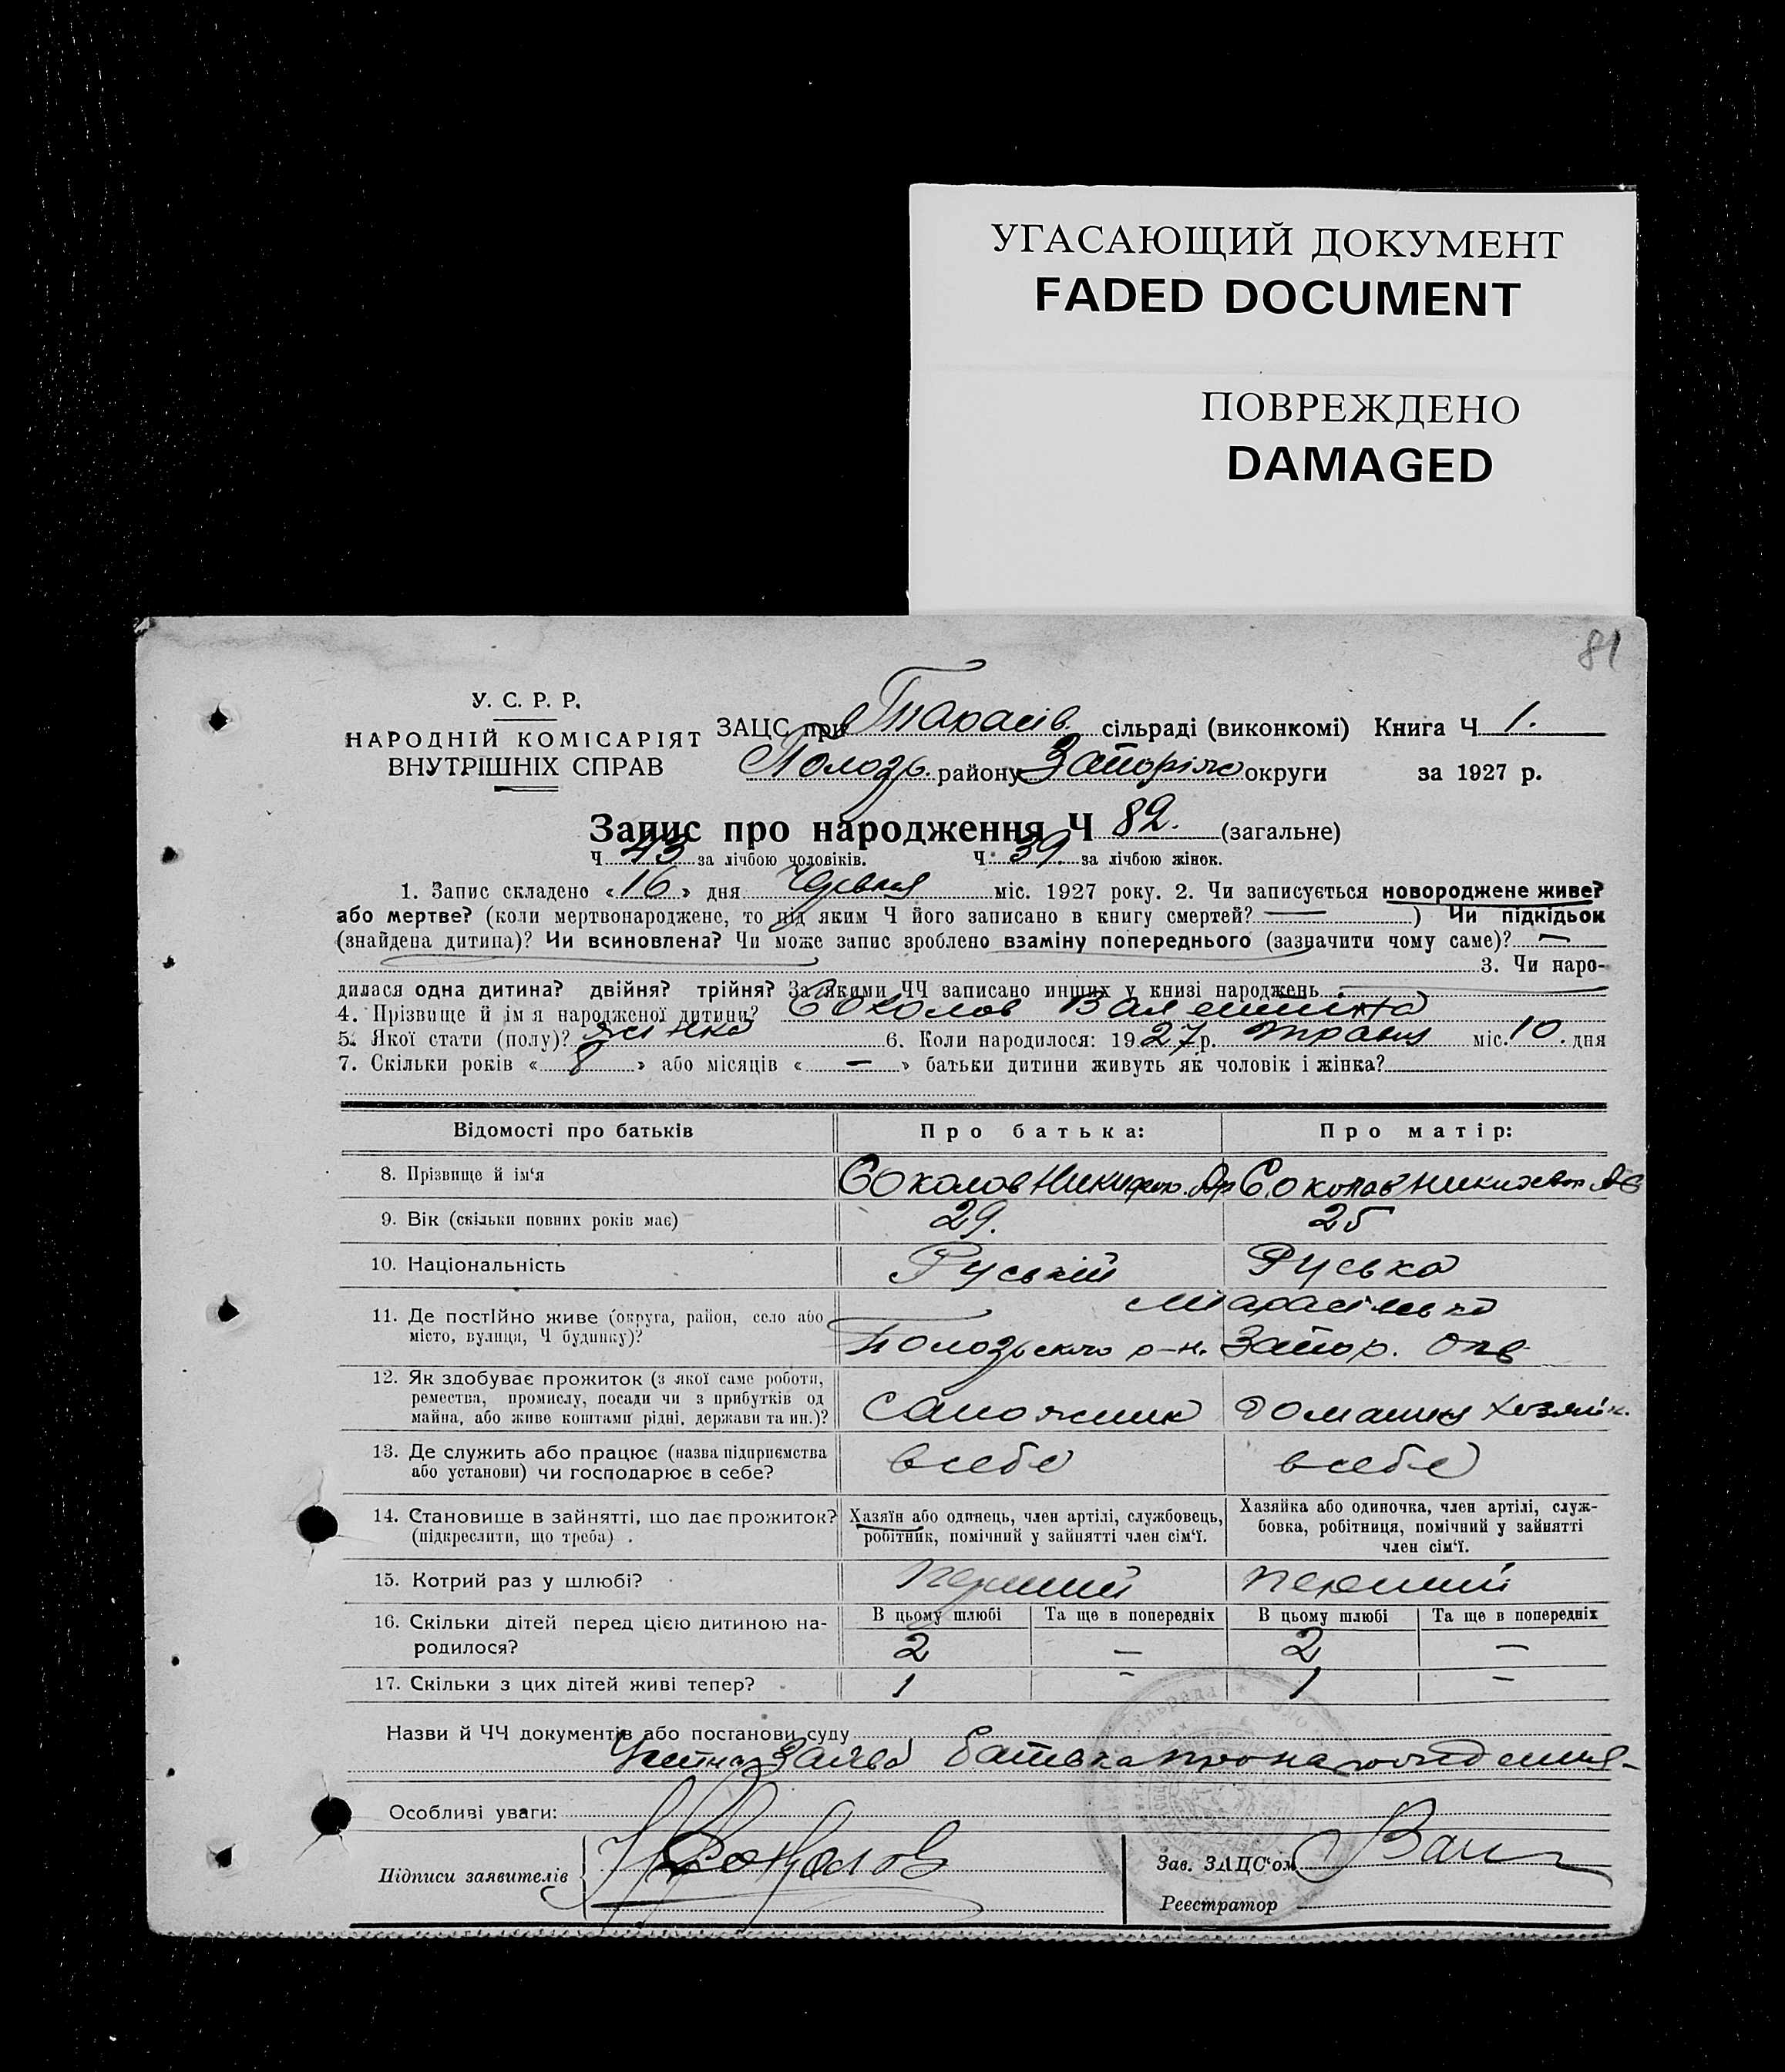 УГАСАЮЩИЙ ДОКУМЕНТ
FADED DOCUMENT
ПОВРЕЖДЕНО
DAMAGED
81
У. С. Р. Р.
НАРОДНІЙ КОМІСАРІЯТ
ВНУТРІШНІХ СПРАВ
ЗАЦС при Тарасів. сільраді (виконкомі) Книга Ч 1.
Полозь. району Запоріж округи за 1927 р.
Запис про народження Ч 82. (загальне)
Ч 43 за лічбою чоловіків. Ч 39. за лічбою жінок.
1. Запис складено «16» дня Червня міс. 1927 року. 2. Чи записується новороджене живе?
або мертве? (коли мертвонароджене, то під яким Ч його записано в книгу смертей? —) Чи підкідьок
(знайдена дитина)? Чи всиновлена? Чи може запис зроблено взаміну попереднього (зазначити чому саме)? —
3. Чи наро-
дилася одна дитина? двійня? трійня? За якими ЧЧ записано инших у книзі народжень
4. Прізвище й ім'я народженої дитини? Соколов Валентіна
5. Якої стати (полу)? жінка 6. Коли народилося: 1927 р. травня міс. 10. дня
7. Скільки років «8» або місяців «—» батьки дитини живуть як чоловік і жінка?
Відомості про батьків Про батька: Про матір:
8. Прізвище й ім'я Соколов Никифор. Соколов
9. Вік (скільки повних років має) 29. 25
10. Національність Руській Руська
11. Де постійно живе (округа, район, село або
місто, вулиця, Ч будинку)?
Полозьского р-н. Запор. Окв
12. Як здобуває прожиток (з якої саме роботи,
ремества, промислу, посади чи з прибутків од
майна, або живе коштами рідні, держави та ин.)?
Сапожник Домашня хозяйк.
13. Де служить або працює (назва підприємства
або установи) чи господарює в себе?
в себе в себе
14. Становище в зайнятті, що дає прожиток?
(підкреслити, що треба)
Хазяїн або одинець, член артілі, службовець,
робітник, помічний у зайнятті член сім'ї.
Хазяйка або одиночка, член артілі, служ-
бовка, робітниця, помічний у зайнятті
член сім'ї.
15. Котрий раз у шлюбі? перший перший
16. Скільки дітей перед цією дитиною на-
родилося?
В цьому шлюбі Та ще в попередніх В цьому шлюбі Та ще в попередніх
2 — 2 —
17. Скільки з цих дітей живі тепер? 1 - 1 -
Назви й ЧЧ документів або постанови суду
Устна Заява батька про народження
Особливі уваги:
Підписи заявителів Н Соколов
Зав. ЗАЦС'ом
Реєстратор